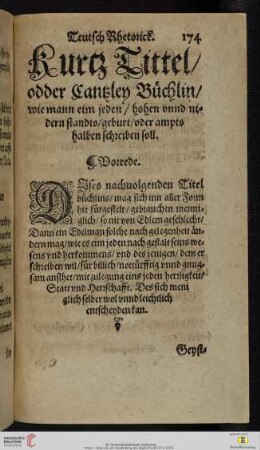 Teutsch Rhetorick. 174
Kurtz Tittel/
odder Cantzley Büchlin/
wie mann eim jeden/ hohen vnnd ni-
dern standts/ geburt/ oder ampts
halben schreiben soll.
¶ Vorrede.
Dises nachuolgenden Titel
büchlins/ mag sich inn aller Form
hie fürgestelt/ gebrauchen menni-
glich/ so nit von Edlem geschlecht/
Dann ein Edelman solche nach gelegenheit än-
dern mag/ wie es eim jeden nach gestalt seins we-
sens vnd herkomens/ vnd des jenigen/ dem er
schreiben wil/ für billich/ notürfftig vnnd gnug-
sam ansihet/ mit zulegung eins jeden herligkeit/
Statt vnd Herrschafft. Des sich meni
glich selber wol vnnd leichtlich
entscheyden kan.
Geyst-